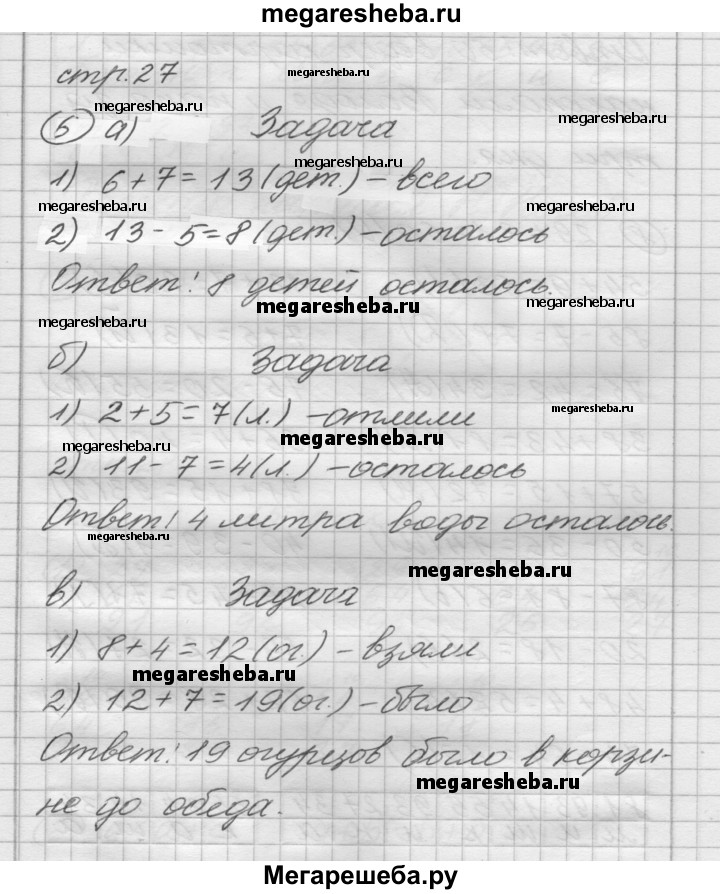 megaresheba.ru
стр. 27
megaresheba.ru
megaresheba.ru
megaresheba.ru
5 а) Задача
megaresheba.ru
1) 6 + 7 = 13 (дет.) – всего
megaresheba.ru
megaresheba.ru
2) 13 - 5 = 8 (дет.) – осталось
Ответ: 8 детей осталось.
megaresheba.ru
megaresheba.ru
megaresheba.ru
б) Задача
1) 2 + 5 = 7 (л.) – отлили
megaresheba.ru
megaresheba.ru
megaresheba.ru
2) 11 - 7 = 4 (л.) – осталось
Ответ: 4 литра воды осталось.
megaresheba.ru
megaresheba.ru
в) Задача
1) 8 + 4 = 12 (ог.) – взяли
megaresheba.ru
2) 12 + 7 = 19 (ог.) – было
Ответ: 19 огурцов было в корзи-
megaresheba.ru
не до обеда.
Мегарешеба.ру